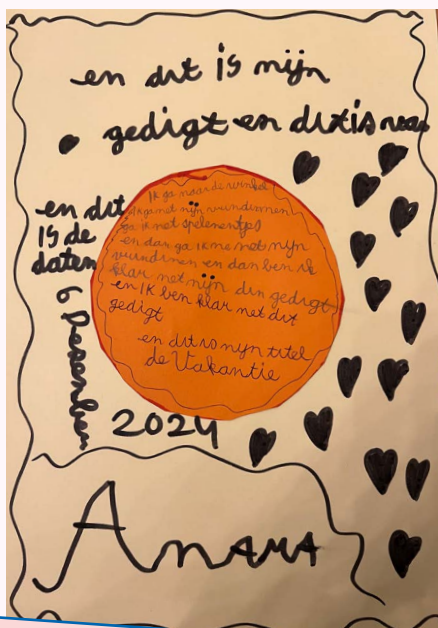 en dit is mijn
gedigt en dit is
en dit
is de
daten
6 December
2024
Ik ga naar de winkel
met mijn vrindinnen
ga ik met spelenentjes
en dan ga ik me met mijn
vrindinen en dan ben ik
klar met mijn din gedigt
en Ik ben klar met dit
gedigt
en dit is mijn titel
de Vakantie
Anama